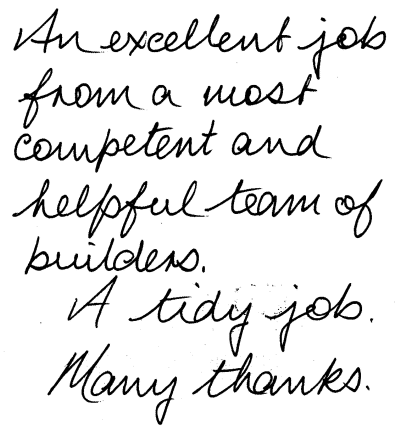 An excellent job
from a most
competent and
helpful team of
builders.
A tidy job.
Many thanks.